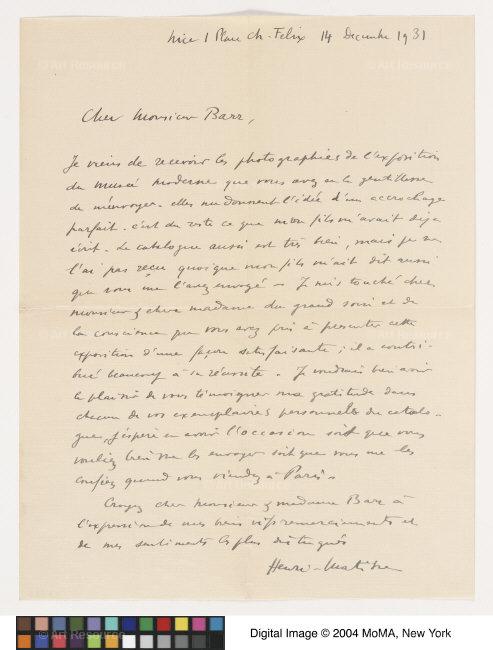 Nice 1 Place Ch-Félix 14 Decembre 1931
Cher Monsieur Barr,
Je viens de recevoir les photographies de l'exposition
du musée moderne que vous avez eu la gentillesse
de m'envoyer. elles me donnent l'idée d'un accrochage
parfait. c'est du reste ce que mon fils m'avait déja
écrit. Le catalogue aussi est très bien, mais je ne
l'ai pas reçu quoique mon fils m'ait dit aussi
que vous me l'avez envoyé. Je suis touché cher
monsieur & chère madame du grand soin et de
la conscience que vous avez pris à présenter cette
exposition d'une façon satisfaisante; il a contri-
bué beaucoup à sa réussite. Je voudrais bien avoir
le plaisir de vous témoigner ma gratitude dans
chacun de vos exemplaires personnels du catalo-
gue, j'espère en avoir l'occasion soit que vous
vouliez bien me les envoyer soit que vous me les
confiez quand vous viendrez à Paris.
Croyez cher Monsieur & madame Barr à
l'expression de mes bien vifs remerciements et
de mes sentiments les plus distingués
Henri-Matisse
© Art Resource
Digital Image © 2004 MoMA, New York